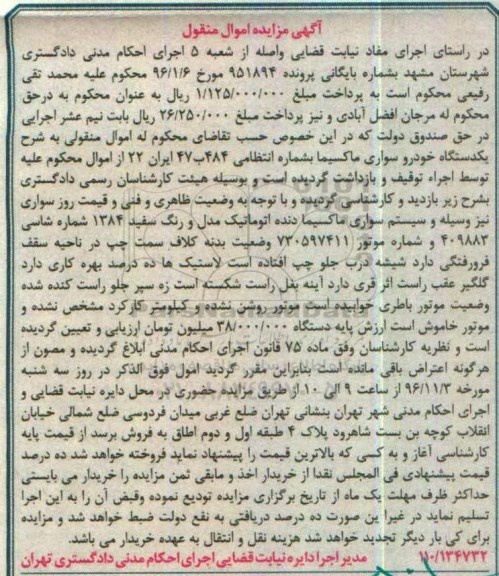 آگهی مزایده اموال منقول
در راستای اجرای مفاد نیابت قضایی واصله از شعبه ۵ اجرای احکام مدنی دادگستری
شهرستان مشهد بشماره بایگانی پرونده ۹۵۱۸۹۴ مورخ ۹۶/۱/۶ محکوم علیه محمد تقی
رفیعی محکوم است به پرداخت مبلغ ۱/۱۲۵/۰۰۰/۰۰۰ ریال به عنوان محکوم به درحق
محکوم له مرجان افضل آبادی و نیز پرداخت مبلغ ۲۶/۲۵۰/۰۰۰ ریال بابت نیم عشر اجرایی
در حق صندوق دولت که در این خصوص حسب تقاضای محکوم له اموال منقولی به شرح
یکدستگاه خودرو سواری ماکسیما بشماره انتظامی ۴۸۴ب۴۷ ایران ۲۲ از اموال محکوم علیه
توسط اجراء توقیف و بازداشت گردیده است و بوسیله هیئت کارشناسان رسمی دادگستری
بشرح زیر بازدید و کارشناسی گردیده و با توجه به وضعیت ظاهری و فنی و قیمت روز سواری
نیز وسیله و سیستم سواری ماکسیما دنده اتوماتیک مدل و رنگ سفید ۱۳۸۴ شماره شاسی
۴۰۹۸۸۳ و شماره موتور ۷۳۰۵۹۷۴۱۱ وضعیت بدنه کلاف سمت چپ در ناحیه سقف
فرورفتگی دارد شیشه درب جلو چپ افتاده است لاستیک ها ده درصد بهره کاری دارد
گلگیر عقب راست اثر قری دارد آینه بغل راست شکسته است زه سپر جلو راست کنده شده
وضعیت موتور باطری خوابیده است موتور روشن نشده و کیلومتر کارکرد مشخص نشده و
موتور خاموش است ارزش پایه دستگاه ۳۸/۰۰۰/۰۰۰ میلیون تومان ارزیابی و تعیین گردیده
است و نظریه کارشناسان وفق ماده ۷۵ قانون اجرای احکام مدنی ابلاغ گردیده و مصون از
هرگونه اعتراض باقی مانده است بنابراین مقرر گردید اموال فوق الذکر در روز سه شنبه
مورخه ۹۶/۱۱/۳ از ساعت ۹ الی ۱۰ از طریق مزایده حضوری در محل دایره نیابت قضایی و
اجرای احکام مدنی شهر تهران بنشانی تهران ضلع غربی میدان فردوسی ضلع شمالی خیابان
انقلاب کوچه بن بست شاهرود پلاک ۴ طبقه اول و دوم اطاق به فروش برسد از قیمت پایه
کارشناسی آغاز و به کسی که بالاترین قیمت را پیشنهاد نماید فروخته خواهد شد ده درصد
قیمت پیشنهادی فی المجلس نقدا از خریدار اخذ و مابقی ثمن مزایده را خریدار می بایستی
حداکثر ظرف مهلت یک ماه از تاریخ برگزاری مزایده تودیع نموده وقبض آن را به این اجرا
تسلیم نماید در غیر این صورت ده درصد دریافتی به نفع دولت ضبط خواهد شد و مزایده
برای کی بار دیگر تجدید خواهد شد هزینه نقل و انتقال به عهده خریدار می باشد.
۱۱۰/۱۳۴۷۳۲ مدیر اجرا دایره نیابت قضایی اجرای احکام مدنی دادگستری تهران